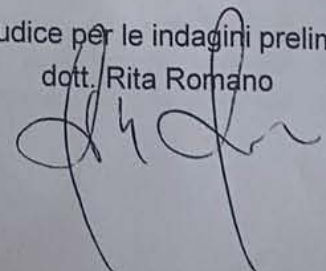 udice per le indagini prelim
dott. Rita Romano